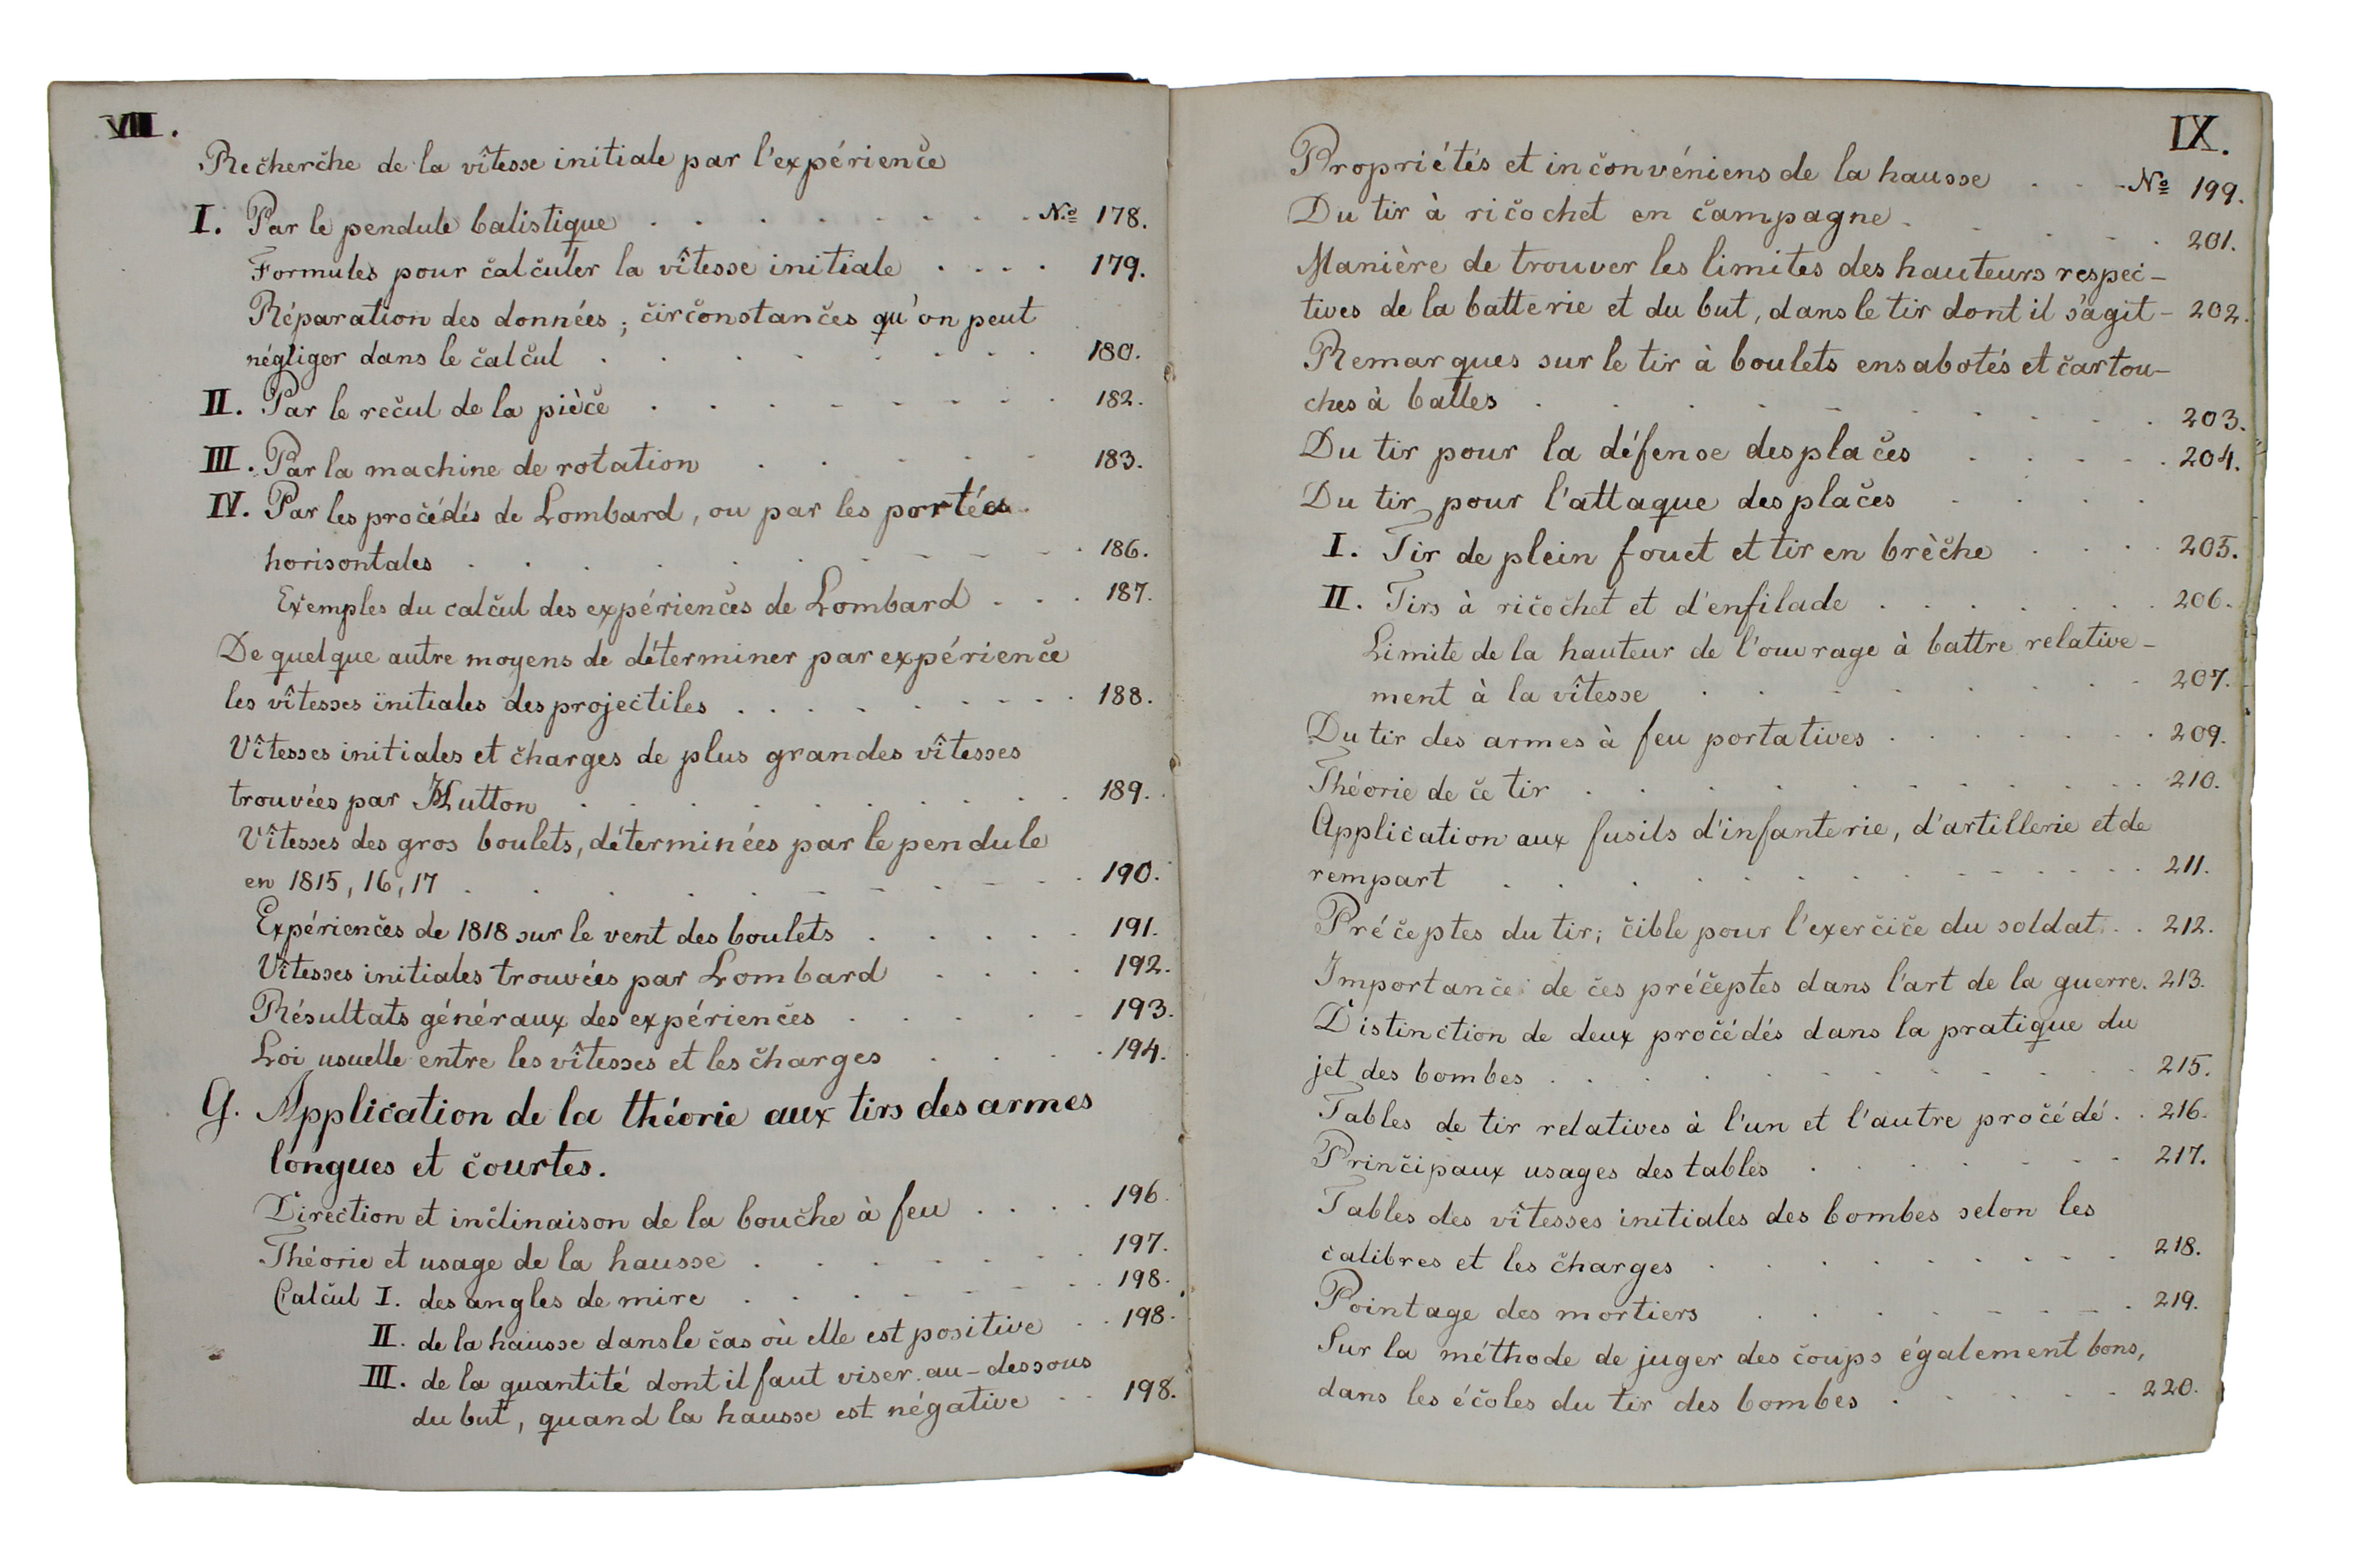 VIII.
Recherche de la vîtesse initiale par l'expérience
I. Par le pendule balistique . . . . . . . . Nº 178.
Formules pour calculer la vîtesse initiale . . . . 179.
Réparation des données; circonstances qu'on peut
négliger dans le calcul . . . . . . . . 180.
II. Par le recul de la pièce . . . . . . . . 182.
III. Par la machine de rotation . . . . . 183.
IV. Par les procédés de Lombard, ou par les portées
horisontales . . . . . . . . . 186.
Exemples du calcul des expériences de Lombard . . . 187.
De quelque autre moyens de déterminer par expérience
les vîtesses initiales des projectiles . . . . . . . . 188.
Vîtesses initiales et charges de plus grandes vîtesses
trouvées par Hutton . . . . . . . . . 189.
Vîtesses des gros boulets, déterminées par le pendule
en 1815, 16, 17 . . . . . . . . . . 190.
Expériences de 1818 sur le vent des boulets . . . . . 191.
Vîtesses initiales trouvées par Lombard . . . . 192.
Résultats généraux des expériences . . . . . 193.
Loi usuelle entre les vîtesses et les charges . . . . 194.
G. Application de la théorie aux tirs des armes
longues et courtes.
Direction et inclinaison de la bouche à feu . . . . 196.
Théorie et usage de la hausse . . . . . . . 197.
Calcul I. des angles de mire . . . . . . . 198.
II. de la hausse dans le cas où elle est positive . . 198.
III. de la quantité dont il faut viser au-dessous
du but, quand la hausse est négative . . 198.
IX.
Propriétés et inconvéniens de la hausse . . . Nº 199.
Du tir à ricochet en campagne . . . . . 201.
Manière de trouver les limites des hauteurs respec-
tives de la batterie et du but, dans le tir dont il s'agit - 202.
Remarques sur le tir à boulets ensabotés et cartou-
ches à balles . . . . . . . . . 203.
Du tir pour la défense des places . . . . . 204.
Du tir pour l'attaque des places . . . .
I. Tir de plein fouet et tir en brèche . . . . 205.
II. Tirs à ricochet et d'enfilade . . . . . . . 206.
Limite de la hauteur de l'ouvrage à battre relative-
ment à la vîtesse . . . . . . . . 207.
Du tir des armes à feu portatives . . . . . . . 209.
Théorie de ce tir . . . . . . . . . . 210.
Application aux fusils d'infanterie, d'artillerie et de
rempart . . . . . . . . . . . . 211.
Préceptes du tir; cible pour l'exercice du soldat . . 212.
Importance de ces préceptes dans l'art de la guerre. 213.
Distinction de deux procédés dans la pratique du
jet des bombes . . . . . . . . . . . 215.
Tables de tir relatives à l'un et l'autre procédé . . 216.
Principaux usages des tables . . . . . . . 217.
Tables des vîtesses initiales des bombes selon les
calibres et les charges . . . . . . . . 218.
Pointage des mortiers . . . . . . . 219.
Sur la méthode de juger des coups également bons,
dans les écoles du tir des bombes . . . . . 220.